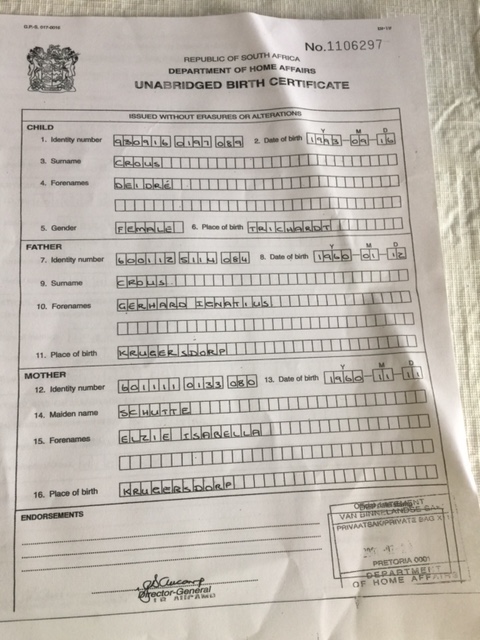 G.P.-S. 017-0016
No.1106297
REPUBLIC OF SOUTH AFRICA
DEPARTMENT OF HOME AFFAIRS
UNABRIDGED BIRTH CERTIFICATE
ISSUED WITHOUT ERASURES OR ALTERATIONS
CHILD
Y M D
1. Identity number 930916 0197 089 2. Date of birth 1993-09-16
3. Surname CROUS
4. Forenames DEIDRÉ
5. Gender FEMALE 6. Place of birth TRICHARDT
FATHER
Y M D
7. Identity number 600112 5114 084 8. Date of birth 1960-01-12
9. Surname CROUS
10. Forenames GERHARD IGNATIUS
11. Place of birth KRUGERSDORP
MOTHER
Y M D
12. Identity number 601111 0133 080 13. Date of birth 1960-11-11
14. Maiden name SCHUTTE
15. Forenames ELZIE ISABELLA
16. Place of birth KRUGERSDORP
ENDORSEMENTS
VAN BINNELANDSE SAKE
PRIVAATSAK/PRIVATE BAG X
PRETORIA 0001
DEPARTMENT
OF HOME AFFAIRS
Director-General